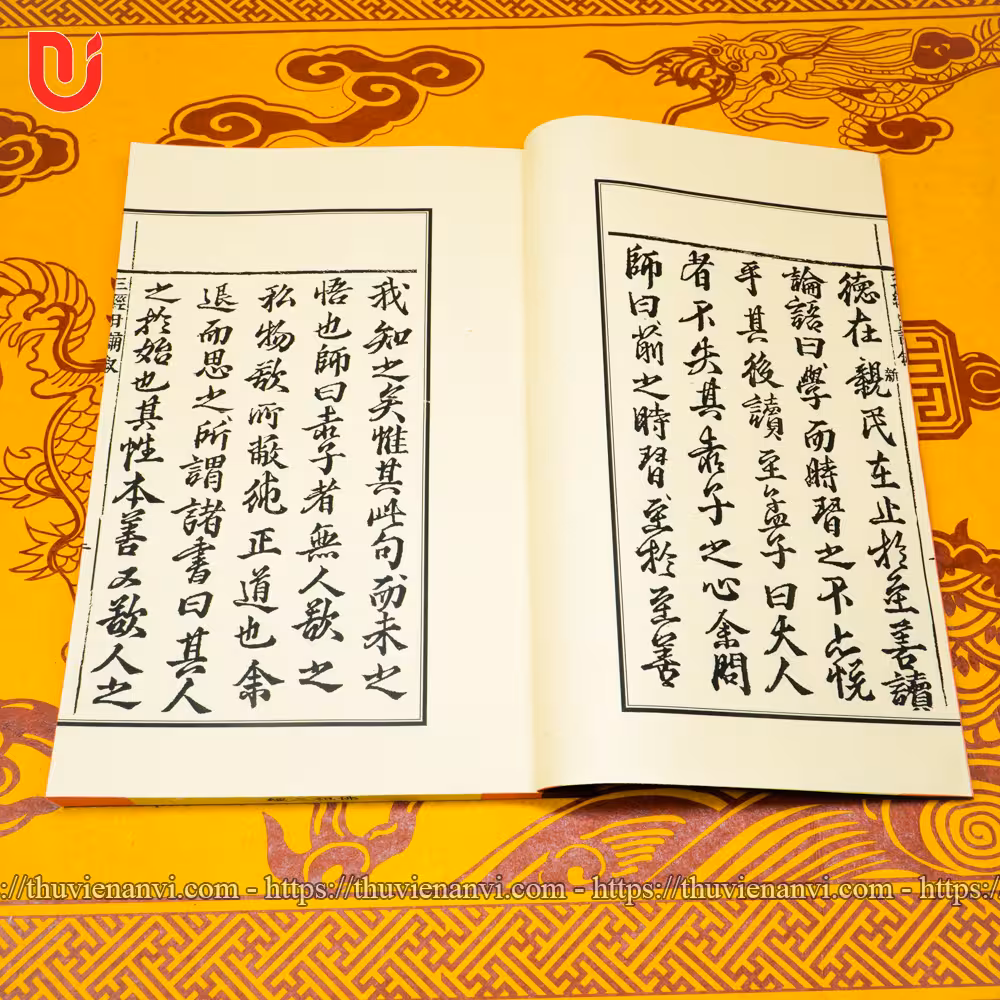 德在親民在止於至善讀
新
論語曰學而時習之不亦悅
乎其後讀至孟子曰大人
者不失其赤子之心余問
師曰前之時習至於至善
我知之矣惟其此句而未之
悟也師曰赤子者無人欲之
私物欲所蔽純正道也余
退而思之所謂諸書曰其人
之於始也其性本善又欲人之
三經日誦
https://thuvienanvi.com - https://thuvienanvi.com - https://thuvienanvi.com